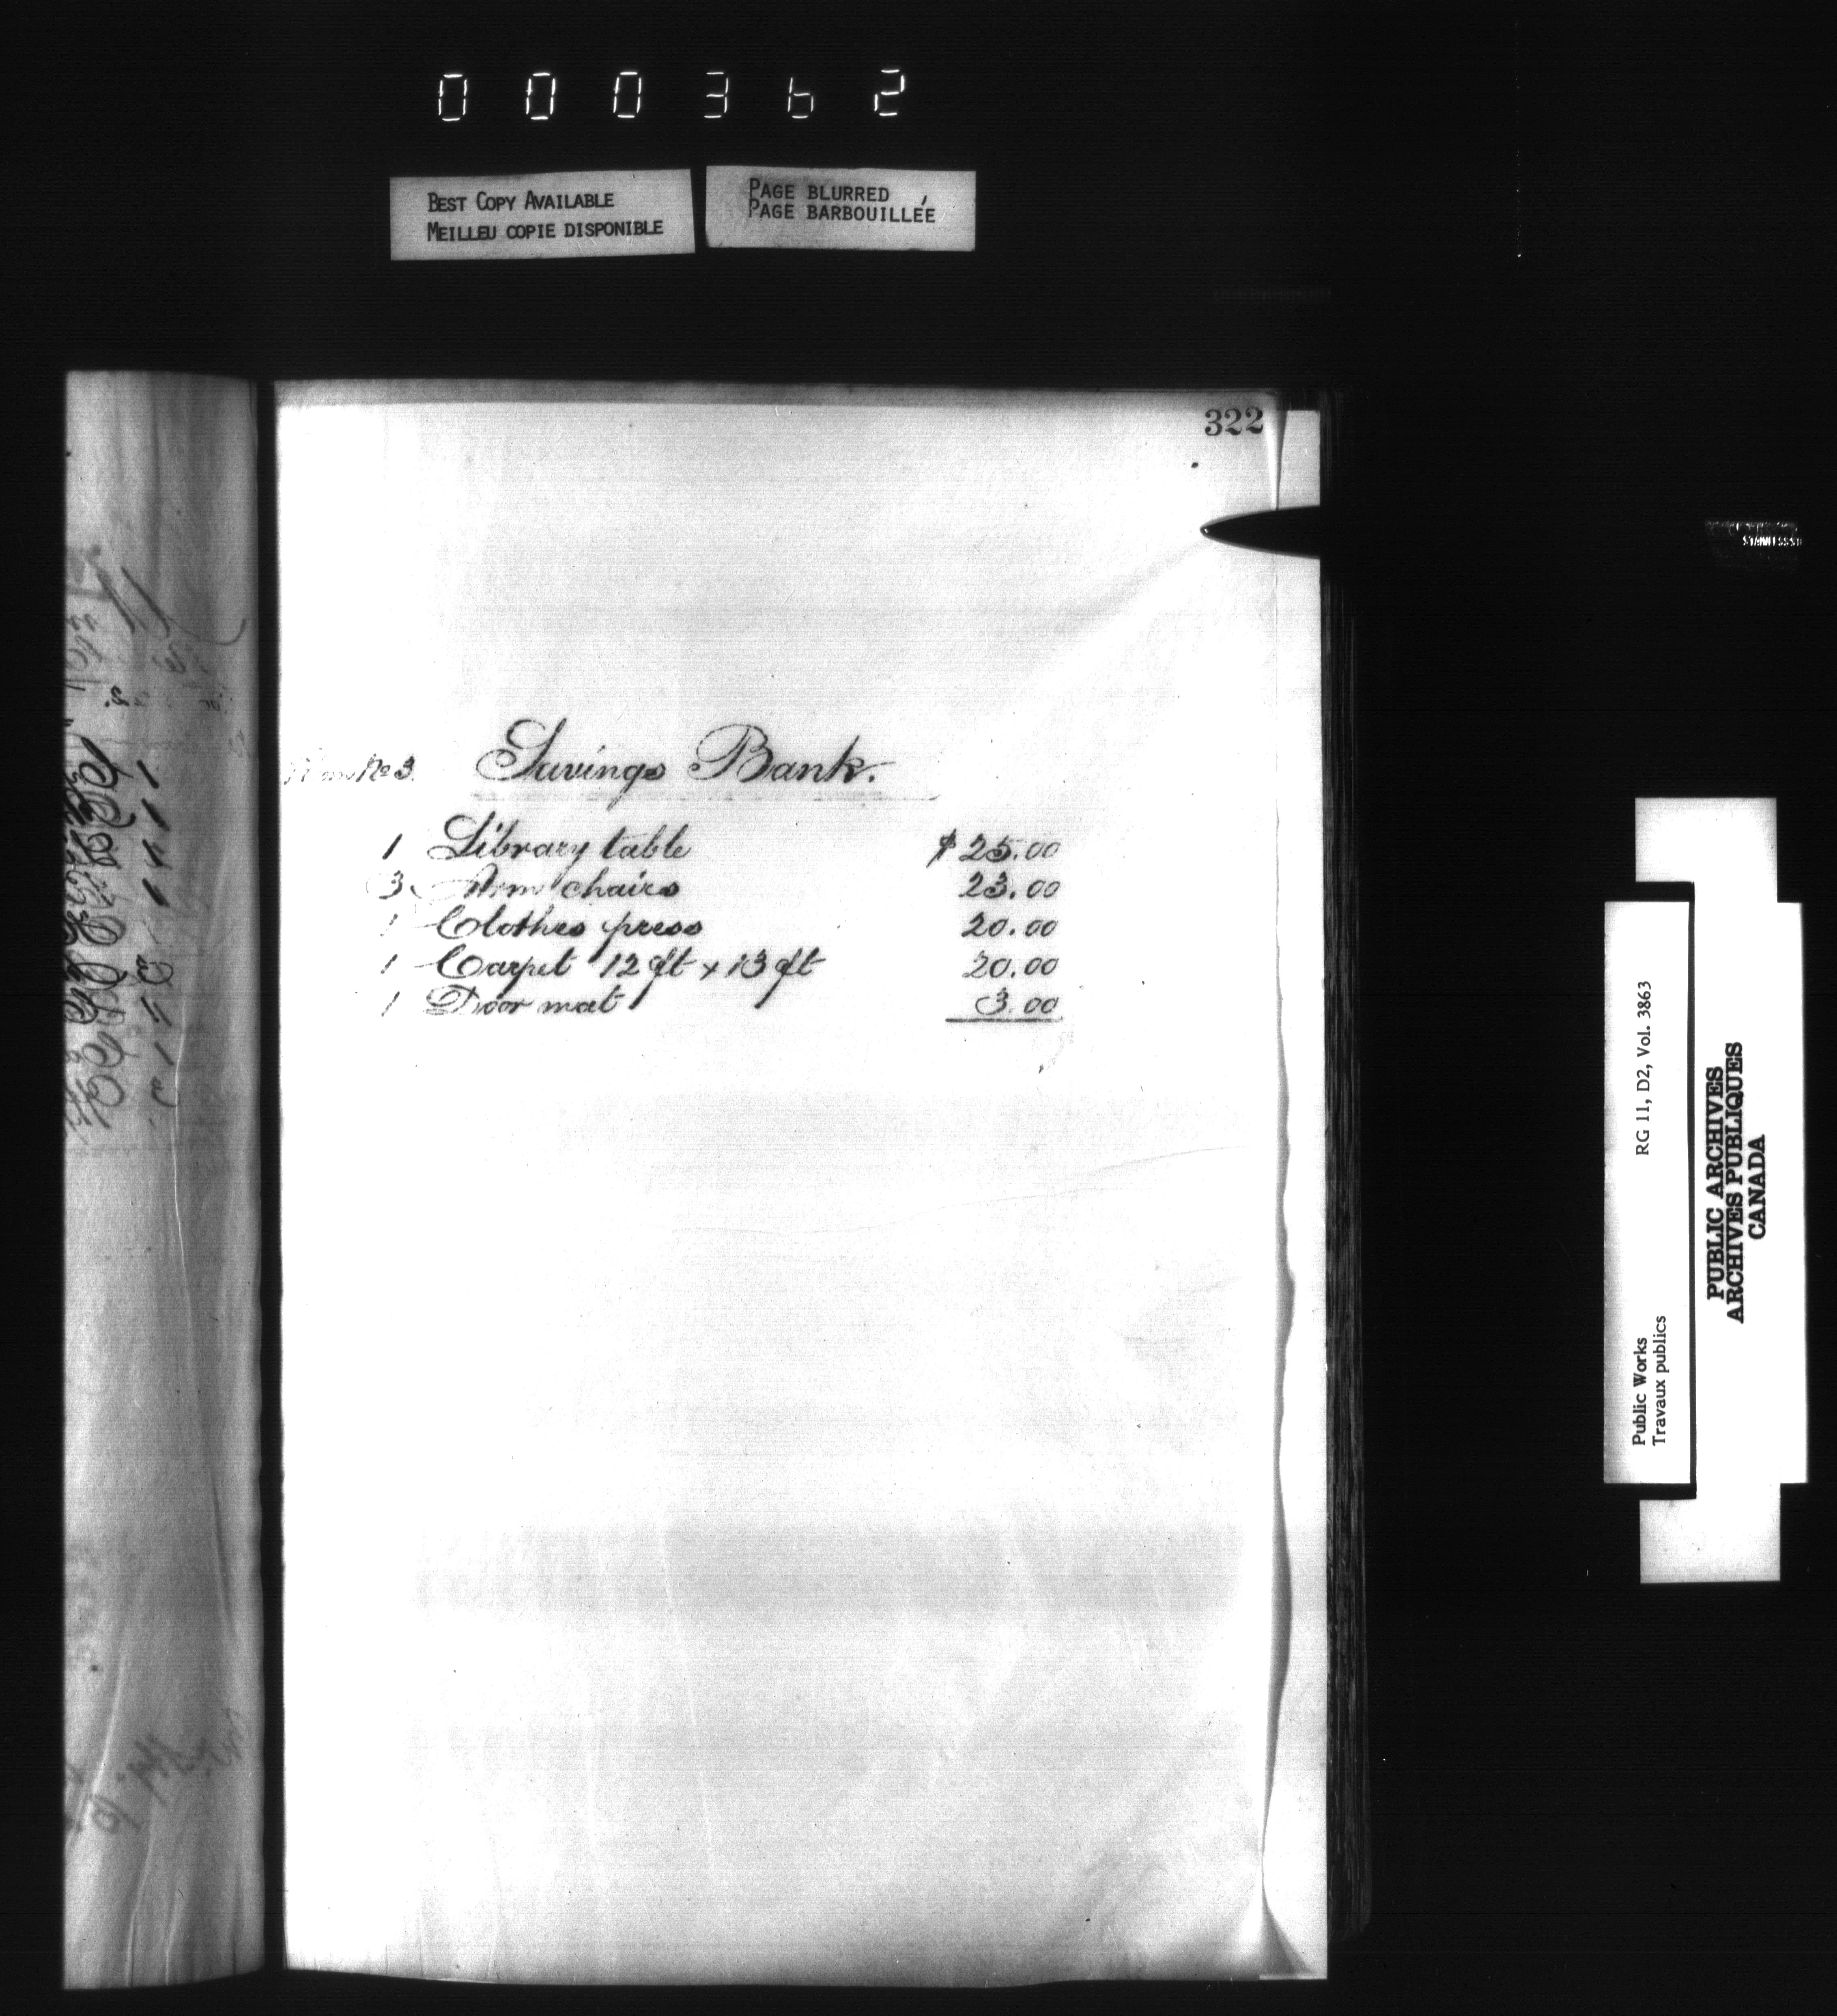 000362
BEST COPY AVAILABLE
MEILLEU COPIE DISPONIBLE
PAGE BLURRED
PAGE BARBOUILLÉE
322
No 3. Savings Bank.
1 Library table $25.00
3 Arm chairs 23.00
1 Clothes press 20.00
1 Carpet 12 ft x 13 ft 20.00
1 Door mat 3.00
RG 11, D2, Vol. 3863
Public Works
Travaux publics
PUBLIC ARCHIVES
ARCHIVES PUBLIQUES
CANADA